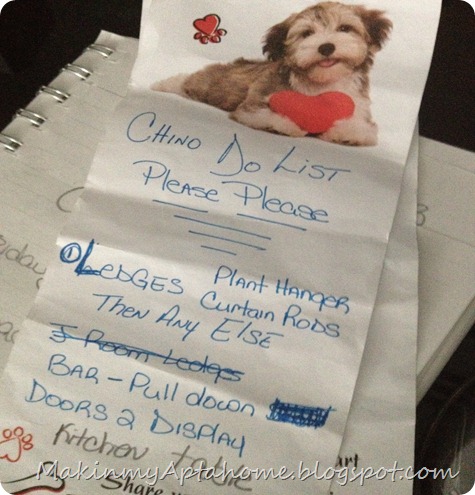 CHINO DO LIST
PLEASE PLEASE
① LEDGES PLANT HANGER
CURTAIN RODS
THEN ANY ELSE
ROOM LEDGES
BAR - PULL DOWN
DOORS 2 DISPLAY
Kitchen table
Share
MakinmyAptahome.blogspot.com